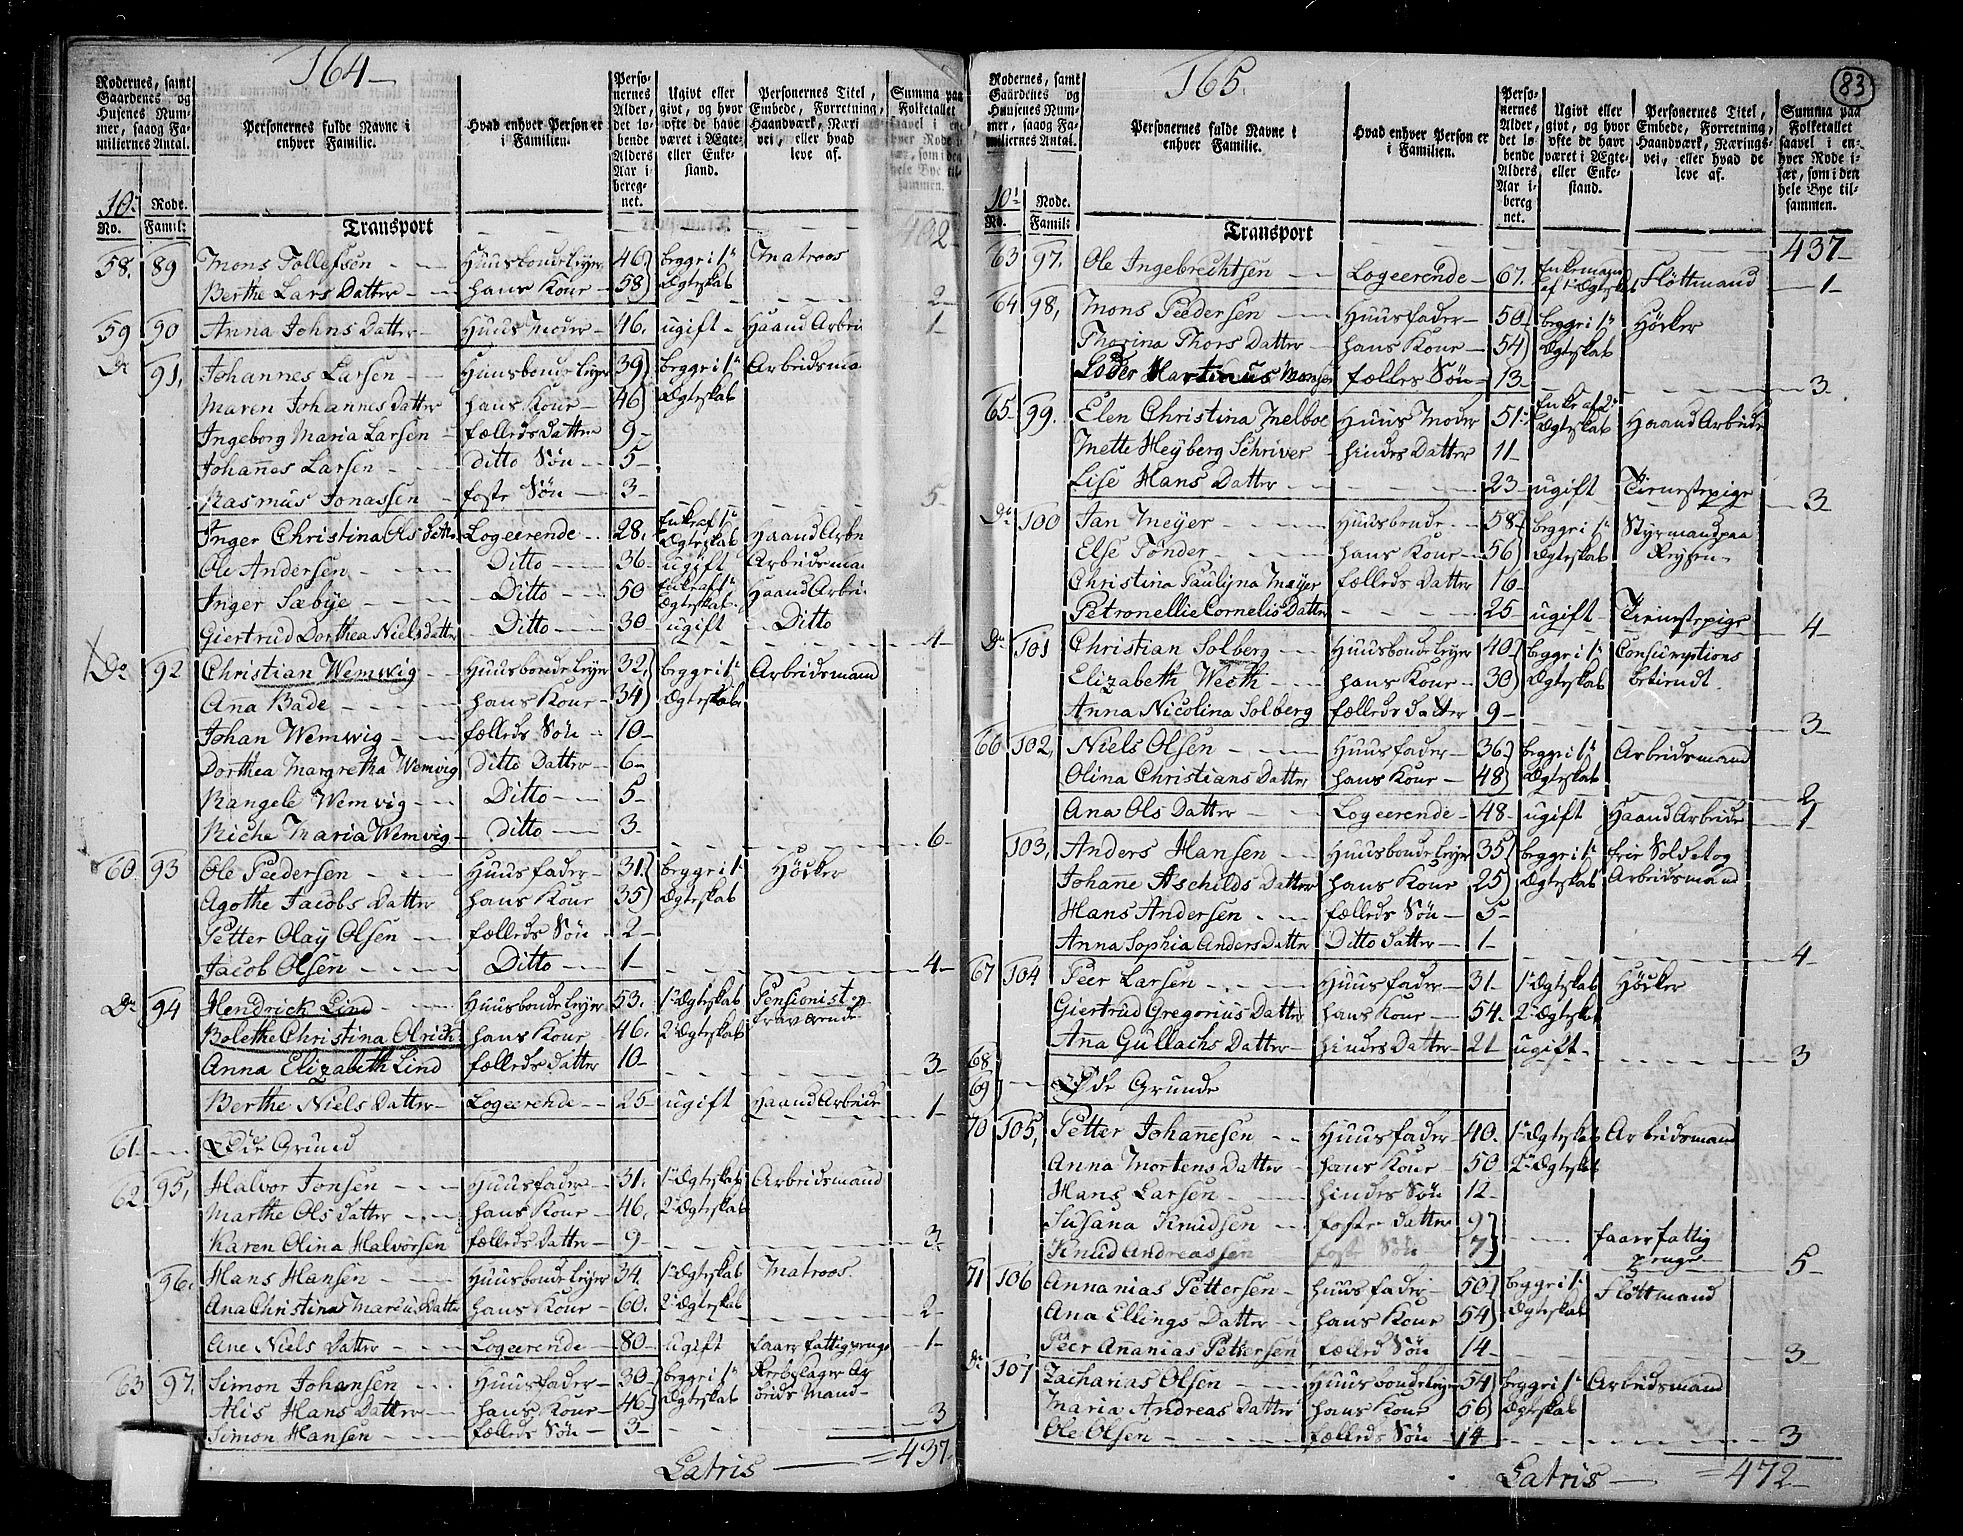 164
Rodernes, samt Gaardenes og Husenes Nummer, saaog Familiernes Antal.
Personernes fulde Navne i enhver Familie.
Hvad enhver Person er i Familien.
Personernes Alder, det løbende Alders Aar iberegnet.
Ugivt eller givt, og hvor ofte de have været i Ægte- eller Enkestand.
Personernes Titel, Embede, Forretning, Haandværk, Næringsvei, eller hvad leve af.
Summa paa Folketallet
10: Rode.
No. Famil:
Transport 402
58. 89 Mons Tollefsen Huusbonde Leyer 46) begge i 1te Matroos
Berthe Lars Datter hans Kone 58) Ægteskab 2
59 90 Anna Johns Datter Huus moder 46. ugift Haand Arbei 1
Do 91, Johannes Larsen Huusbonde Leyer 39) begge i 1te Arbeidsma
Maren Johannes datter hans Kone 46) Ægteskab
Ingeborg Maria Larsen fælleds datter 9
Johañes Larsen ditto Søn 5
Rasmus Jonassen foste Søn 3 5
Inger Christina Ols datter Logeerende 28. Enke af 1te Ægteskab Haand Arbe
Ole Andersen Ditto 36 ugift Arbeidsma
Inger Sæbye Ditto 50 Enke af 1te Ægteskab Haand Arbei
Giertrud Dorthea Nielsdatter Ditto 30 ugift Ditto 4
Do 92 Christian Wemwig Huusbonde Leyer 32) begge i 1te Arbeidsmand
Ana Bade hans Kone 34) Ægteskab
Johan Wemwig fælleds Søn 10
Dorthea Margretha Wemvig ditto Datter 6
Rangele Wemvig Ditto 5
Riche Maria Wemvig ditto 3 6
60 93 Ole Pedersen Huusfader 31) begge i 1 Høcker
Agothe Jacobs Datter hans Kone 35) Ægteskab
Petter Olay Olsen fælleds Søn 2
Jacob Olsen Ditto 1 4
Do 94 Hendrick Lind Huusbonde Leyer 53. 1te Ægteskab Pensionist
Bolethe Christina Olrich hans Kone 46. 2det Ægteskab
Anna Elizabeth Lind fælleds datter 10 3
Berthe Niels Datter Logeerende 25 ugift Haand Arbeide 1
61. Øde Grund
62 95, Halvor Jonsen Huusfader 31. 1te Ægteskab Arbeidsmand
Marthe Ols datter hans Kone 46. 2det Ægteskab
Karen Olina Halvorsen fælleds datter 9 3
96. Hans Hansen Huusbonde Leyer 34. 1te Ægteskab Matroos.
Ana Christina Marcus Datter hans Kone 60. 2det Ægteskab 2
Ane Niels datter Logeerende 80 ugift faaer fattigpenge 1
63 97. Simon Johansen Huusfader 30 begge i 1te Rebslager Ar
Alis Hans Datter hans Kone 46) Ægteskab beids Mand
Simon Hansen fælleds Søn 3 3
Latris = 437
83
165.
Rodernes, samt Gaardenes og Husenes Nummer, saaog Familiernes Antal.
Personernes fulde Navne i enhver Familie.
Hvad enhver Person er i Familien.
Personernes Alder, det løbende Alders Aar iberegnet.
Ugivt eller givt, og hvor ofte de have været i Ægte- eller Enkestand.
Personernes Titel, Embede, Forretning, Haandværk, Næringsvei, eller hvad de leve af.
Summa paa Folketallet saavel i enhver Rode især, som i den hele Bye tilsammen.
10: Rode.
No. Famil:
Transport 437
63 97. Ole Ingebrechtsen Logeerende 67. Enkemand af 1te Ægteskab Fløttmand 1
64 98, Mons Pedersen Huusfader 50 begge i 1te Høcker
Thorina Thors Datter hans Kone 54) Ægteskab
Loder Martinus Monsen fælles Søn 13 3
65 99. Elen Christina Melboe Huus Moder 51 Enke af 2de Ægteskab Haand Arbeide
Mette Heyberg Schriver hindes Datter 11
Lise Hans Datter 23 ugift Tienestepige 3
Do 100 Jan Meyer Huusbonde 58 begge i 1te Styrmand paa
Else Tønder hans Kone 56) Ægteskab Reysen
Christina Paulyna Meyer fælleds Datter 16
Petronellie Cornelis Datter 25 ugift Tienestepige 4
Do 101 Christian Solberg Huusbonde Leyer 40 begge i 1te Consumptions
Elizabeth Weeth hans Kone 30) Ægteskab betiendt.
Anna Nicolina Solberg fælleds datter 9 3
66 102, Niels Olsen Huusfader 36) begge i 1te Arbeidsmand
Olina Christians Datter hans Kone 48) Ægteskab 2
Ana Ols Datter Logeerende 48 ugift Haand Arbeide 1
103, Anders Hansen Huusbonde Leyer 35) begge i 1te frie Soldat og
Johane Aschilds Datter hans Kone 25) Ægteskab Arbeidsmand
Hans Andersen fælleds Søn 5
Anna Sophia Anders Datter Ditto datter 1 4
67 104 Peer Larsen Huusfader 31 1te Ægteskab Høcker
Giertrud Gregorius Datter hans Kone 54. 2det Ægteskab
Ana Gullachs Datter hindes Datter 21 ugift 3
68
69) Øde Grunde
70 105, Petter Johanesen Huusfader 40. 1te Ægteskab Arbeidsmand
Anna Mortens Datter hans Kone 50 2det Ægteskab
Hans Larsen hindes Søn 12
Susana Knudsen foste datter 9)
Knud Andreassen foste Søn 7) faaer fattig penge 5
71 106 Annanias Pettersen huusfader 50) begge i 1te Fløttmand
Ana Ellings Datter hans Kone 54) Ægteskab
Peer Ananias Pettersen fælled Søn 14 3
Do 107 Zacharias Olsen Huusbonde Leyer 54) begge i 1te Arbeidsmand
Maria Andreas Datter hans Kone 56) Ægteskab
Ole Olsen fælleds Søn 14 3
Latris = 472